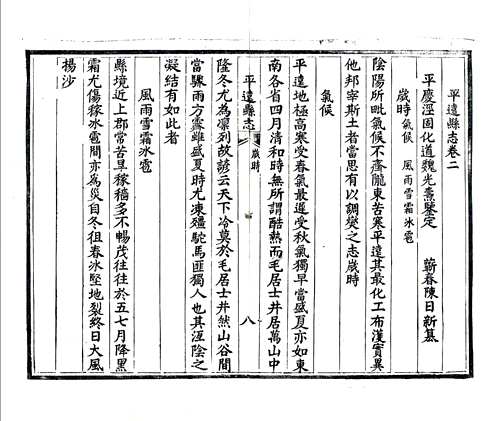 平遠縣志卷二
平慶涇固化道魏光燾鑒定 蘄春陳日新纂
歲時 氣候 風雨雪霜冰雹
陰陽所毗氣候不齊隴東苦寒平遠其最化工布濩實異
他邦宰斯土者當思有以調燮之志歲時
氣候
平遠地極高寒受春氣最遲受秋氣獨早當盛夏亦如東
南各省四月清和時無所謂酷熱而毛居士井居萬山中
平遠縣志 歲時 八
隆冬尤為凜冽故諺云天下冷莫於毛居士井然山谷間
當驟雨方霽雖盛夏時尤凍殭駝馬匪獨人也其沍陰之
凝結有如此者
風雨雪霜冰雹
縣境近上郡常苦旱稼穡多不暢茂往往於五七月降黑
霜尤傷稼冰雹間亦為災自冬徂春冰堅地裂終日大風
揚沙